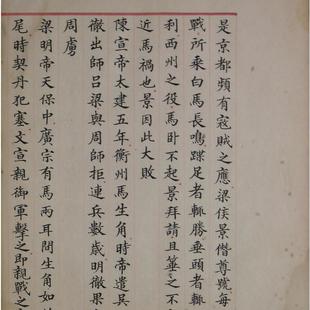 是京都頻有寇賊之應梁侯景僭尊號每
戰所乗白馬長鳴蹀足者輙勝垂頭者輙
利西州之役馬卧不起景拜請且箠之不
近馬禍也景因此大敗
陳宣帝太建五年衡州馬生角時帝遣吳
徹出師吕梁與周師拒連兵數歳明徹果
周虜
梁明帝天保中廣宗有馬兩耳間生角如
尾時契丹犯塞文宣親御軍擊之即親戰之